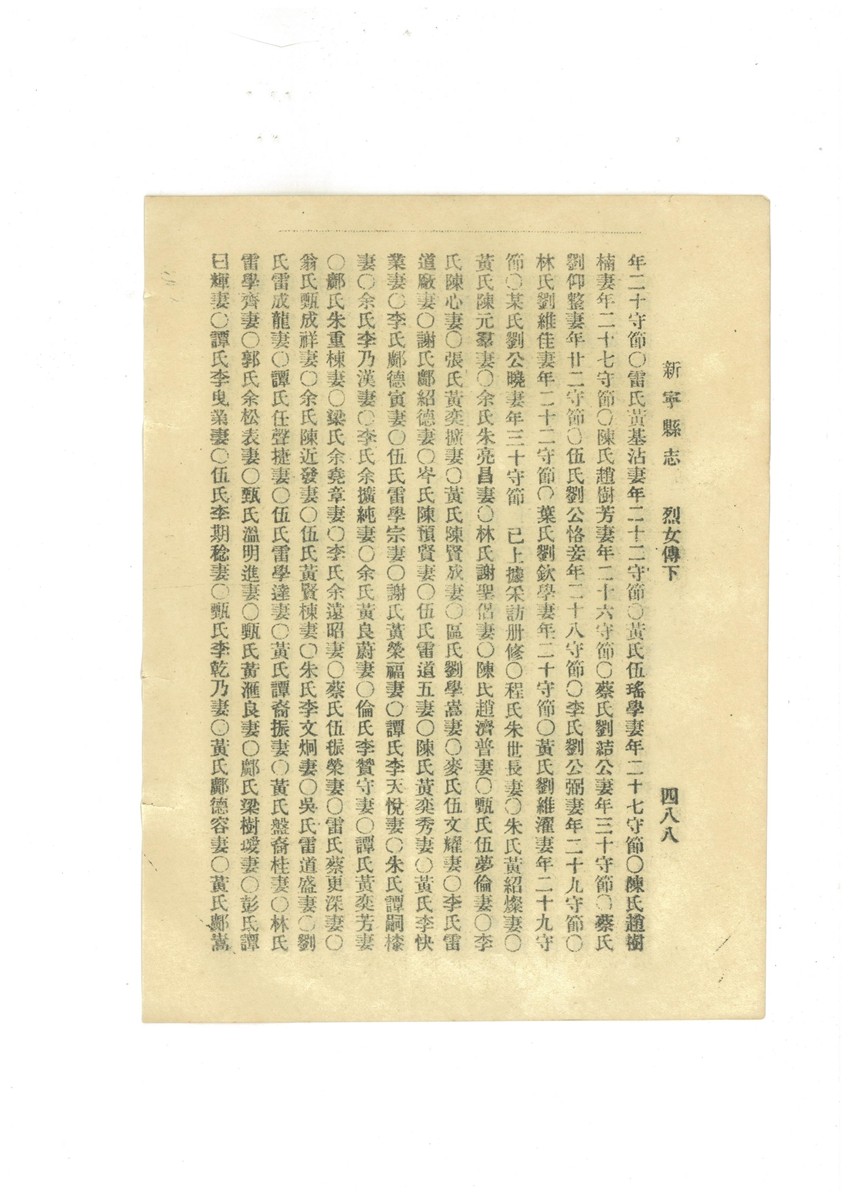 新寧縣志　烈女傳下　四八八
年二十守節〇雷氏黃基沾妻年二十二守節〇黃氏伍瑤學妻年二十七守節〇陳氏趙樹
楠妻年二十七守節〇陳氏趙樹芳妻年二十六守節〇蔡氏劉結公妻年三十守節〇蔡氏
劉仰整妻年廿二守節〇伍氏劉公恪妾年二十八守節〇李氏劉公弼妻年二十九守節〇
林氏劉維佳妻年二十二守節〇葉氏劉欽學妻年二十守節〇黃氏劉維濯妻年二十九守
節〇某氏劉公曉妻年三十守節　已上據采訪册修〇程氏朱世長妻〇朱氏黃紹燦妻〇
黃氏陳元羣妻〇余氏朱亮昌妻〇林氏謝聖侶妻〇陳氏趙濟普妻〇甄氏伍夢倫妻〇李
氏陳心妻〇張氏黃奕擴妻〇黃氏陳賢成妻〇區氏劉學嵩妻〇麥氏伍文耀妻〇李氏雷
道廠妻〇謝氏鄺紹德妻〇岑氏陳預賢妻〇伍氏雷道五妻〇陳氏黃奕秀妻〇黃氏李快
業妻〇李氏鄺德寅妻〇伍氏雷學宗妻〇謝氏黃榮福妻〇譚氏李天悅妻〇朱氏譚嗣
妻〇余氏李乃漢妻〇李氏余擴純妻〇余氏黃良蔚妻〇倫氏李贊守妻〇譚氏黃奕芳妻
〇鄺氏朱重棟妻〇梁氏余堯章妻〇李氏余遠昭妻〇蔡氏伍振榮妻〇雷氏蔡更深妻〇
翁氏甄成祥妻〇余氏陳近發妻〇伍氏黃賢棟妻〇朱氏李文炯妻〇吳氏雷道盛妻〇劉
氏雷成龍妻〇譚氏任聲捷妻〇伍氏雷學達妻〇黃氏譚裔振妻〇黃氏盤裔桂妻〇林氏
雷學齊妻〇郭氏余松表妻〇甄氏溫明進妻〇甄氏黃滙良妻〇鄺氏梁樹璦妻〇彭氏譚
日輝妻〇譚氏李曳業妻〇伍氏李期稔妻〇甄氏李乾乃妻〇黃氏鄺德容妻〇黃氏鄺嵩